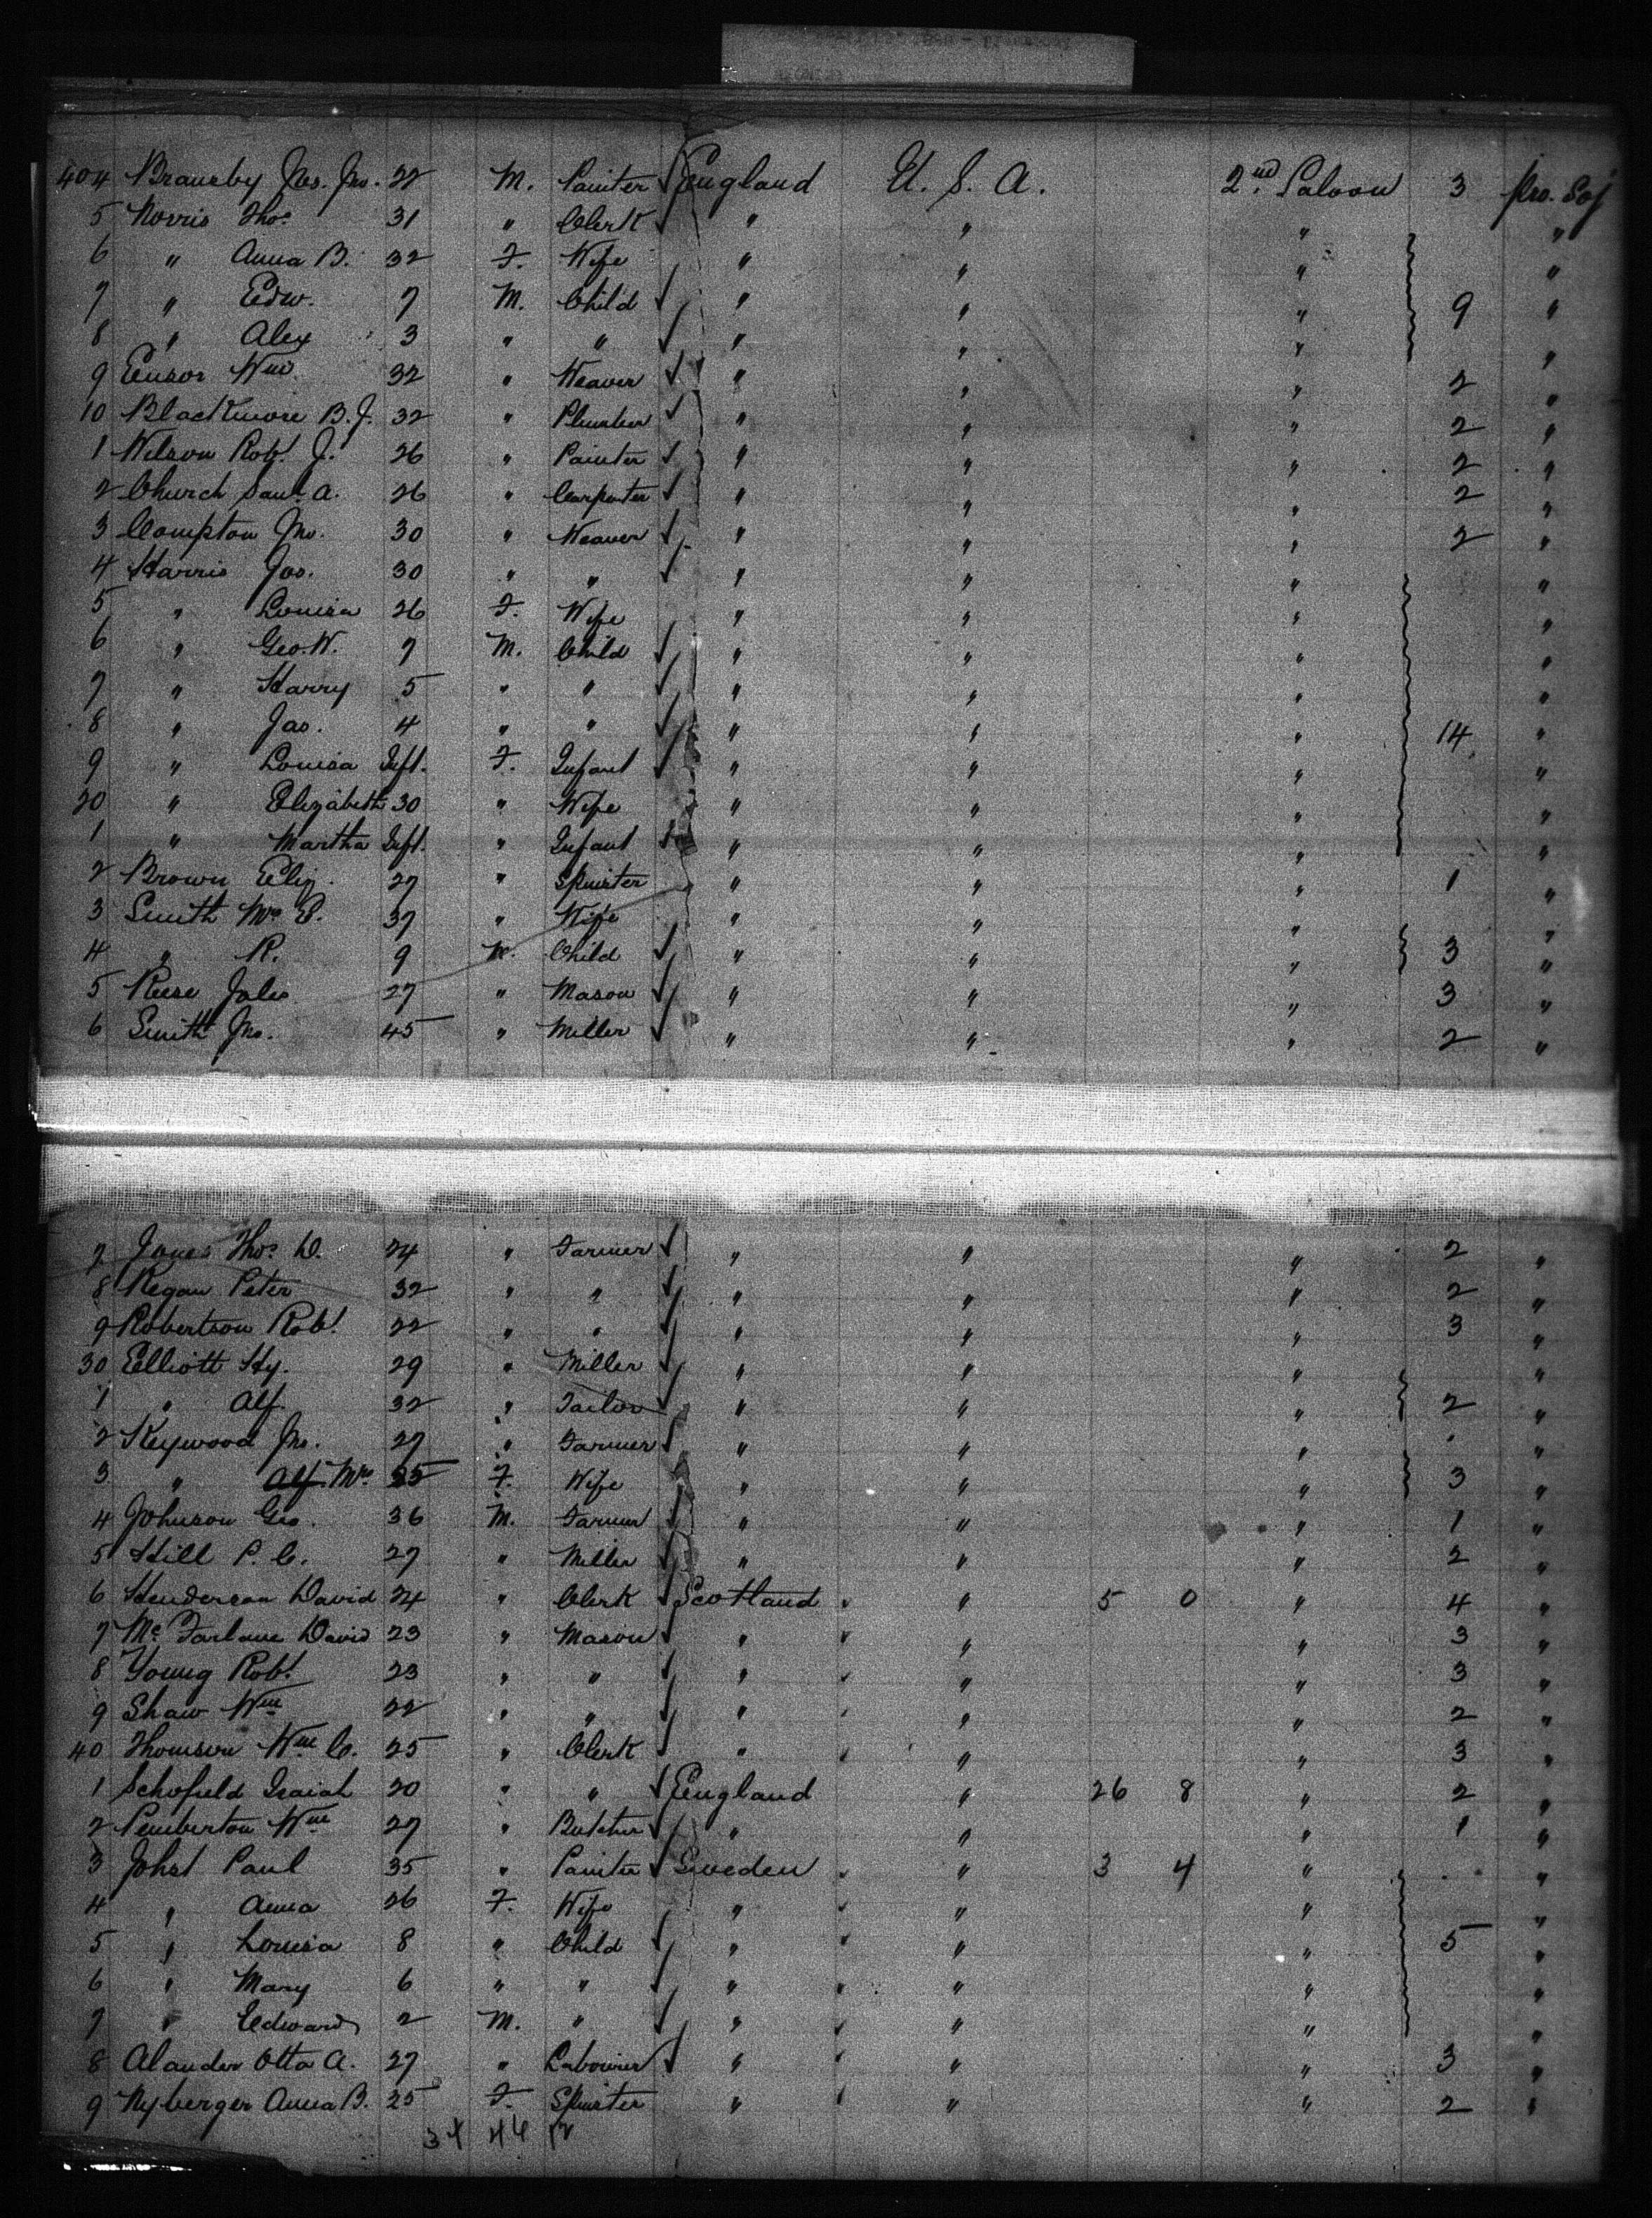 404 Bransby Jas. Jno. 22 M. Painter ✓ England U. S. A. 2nd Saloon 3 Pro. Soj
5 Norris Thos 31 " Clerk ✓ " " " "
6 " Anna B. 32 F. Wife " " " "
7 " Edw. 7 M. Child ✓ " " " 9 "
8 " Alex 3 " " ✓ " " " "
9 Ensor Wm 32 " Weaver ✓ " " " 2 "
10 Blackmore B. J. 32 " Plumber ✓ " " " 2 "
1 Wilson Robt J. 26 " Painter ✓ " " " 2 "
2 Church Saml A. 26 " Carpenter ✓ " " " 2 "
3 Compton Jno. 30 " Weaver ✓ " " " 2 "
4 Harris Jos. 30 " " ✓ " " " "
5 " Louisa 26 F. Wife " " " "
6 " Geo. W. 7 M. Child ✓ " " " "
7 " Harry 5 " " ✓ " " " "
8 " Jas. 4 " " ✓ " " " 14 "
9 " Louisa Inft. F. Infant ✓ " " " "
20 " Elizabeth 30 " Wife " " " "
1 " Martha Inft. " Infant ✓ " " " "
2 Brown Eliz. 27 " Spinster " " " 1 "
3 Smith Mrs E. 37 " Wife " " " "
4 " R. 9 M. Child ✓ " " " 3 "
5 Reese Jules 27 " Mason ✓ " " " 3 "
6 Smith Jno. 45 " Miller ✓ " " " 2 "
7 Jones Thos D. 24 " Farmer ✓ " " " 2 "
8 Regan Peter 32 " " ✓ " " " 2 "
9 Robertson Robt 22 " " ✓ " " " 3 "
30 Elliott Hy. 29 " Miller ✓ " " " "
1 " Alf. 32 " Tailor ✓ " " " 2 "
2 Keywood Jno. 27 " Farmer ✓ " " " "
3 " Alf. Mrs 25 F. Wife " " " 3 "
4 Johnson Geo. 36 M. Farmer ✓ " " " 1 "
5 Hill P. C. 27 " Miller ✓ " " " 2 "
6 Henderson David 24 " Clerk ✓ Scotland " 5 0 " 4 "
7 Mc Farlane David 23 " Mason ✓ " " " 3 "
8 Young Robt 23 " " ✓ " " " 3 "
9 Shaw Wm 22 " " ✓ " " " 2 "
40 Thomson Wm C. 25 " Clerk ✓ " " " 3 "
1 Schofield Isaiah 20 " " ✓ England " 26 8 " 2 "
2 Pemberton Wm 27 " Butcher ✓ " " " 1 "
3 Johst Paul 35 " Painter ✓ Sweden " 3 4 " "
4 " Anna 26 F. Wife " " " "
5 " Louisa 8 " Child ✓ " " " 5 "
6 " Mary 6 " " ✓ " " " "
7 " Edward 2 M. " ✓ " " " "
8 Alander Otto A. 27 " Labourer ✓ " " " 3 "
9 Nyberger Anna B. 25 F. Spinster " " " 2 "
34 46 12